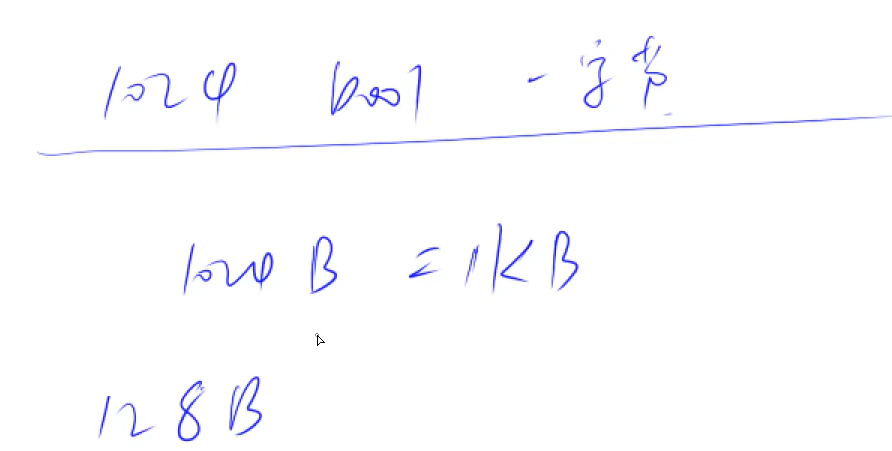 1024 bool 一字节
1024 B = 1KB
128B